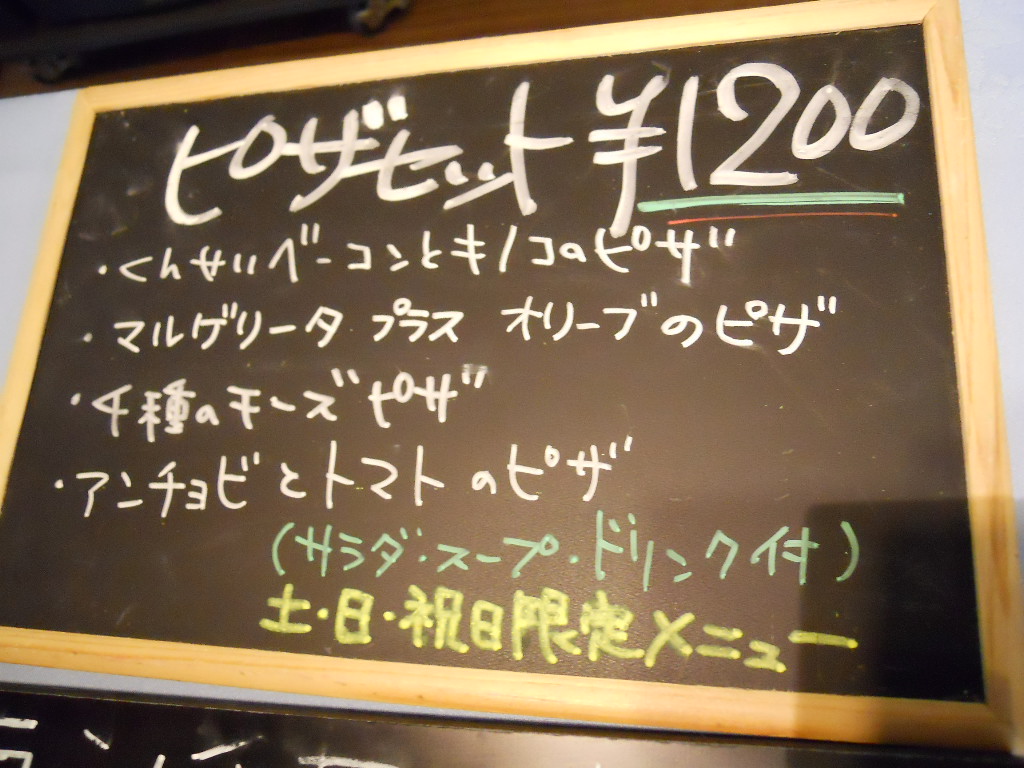 ピザセット ¥1200
・くんせいベーコンとキノコのピザ
・マルゲリータ プラス オリーブのピザ
・4種のモーズピザ
・アンチョビとトマトのピザ
(サラダ・スープ・ドリンク付)
土・日・祝日限定メニュー